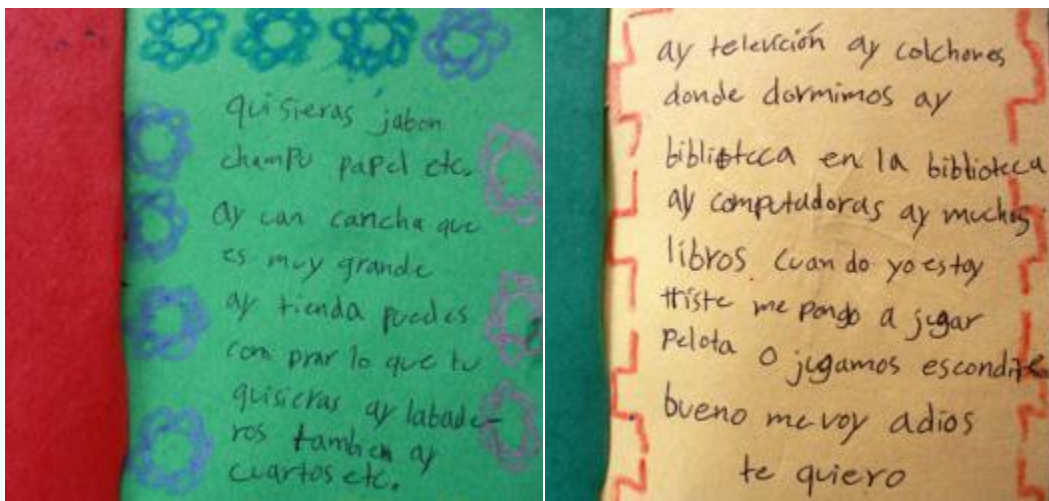 quisieras jabon
champu papel etc.
ay una cancha que
es muy grande
ay tienda puedes
comprar lo que tu
quisieras ay labade-
ros tambien ay
cuartos etc.
ay televición ay colchones
donde dormimos ay
biblioteca en la biblioteca
ay computadoras ay muchos
libros cuando yo estoy
triste me pongo a jugar
pelota o jugamos escondite
bueno me voy adios
te quiero